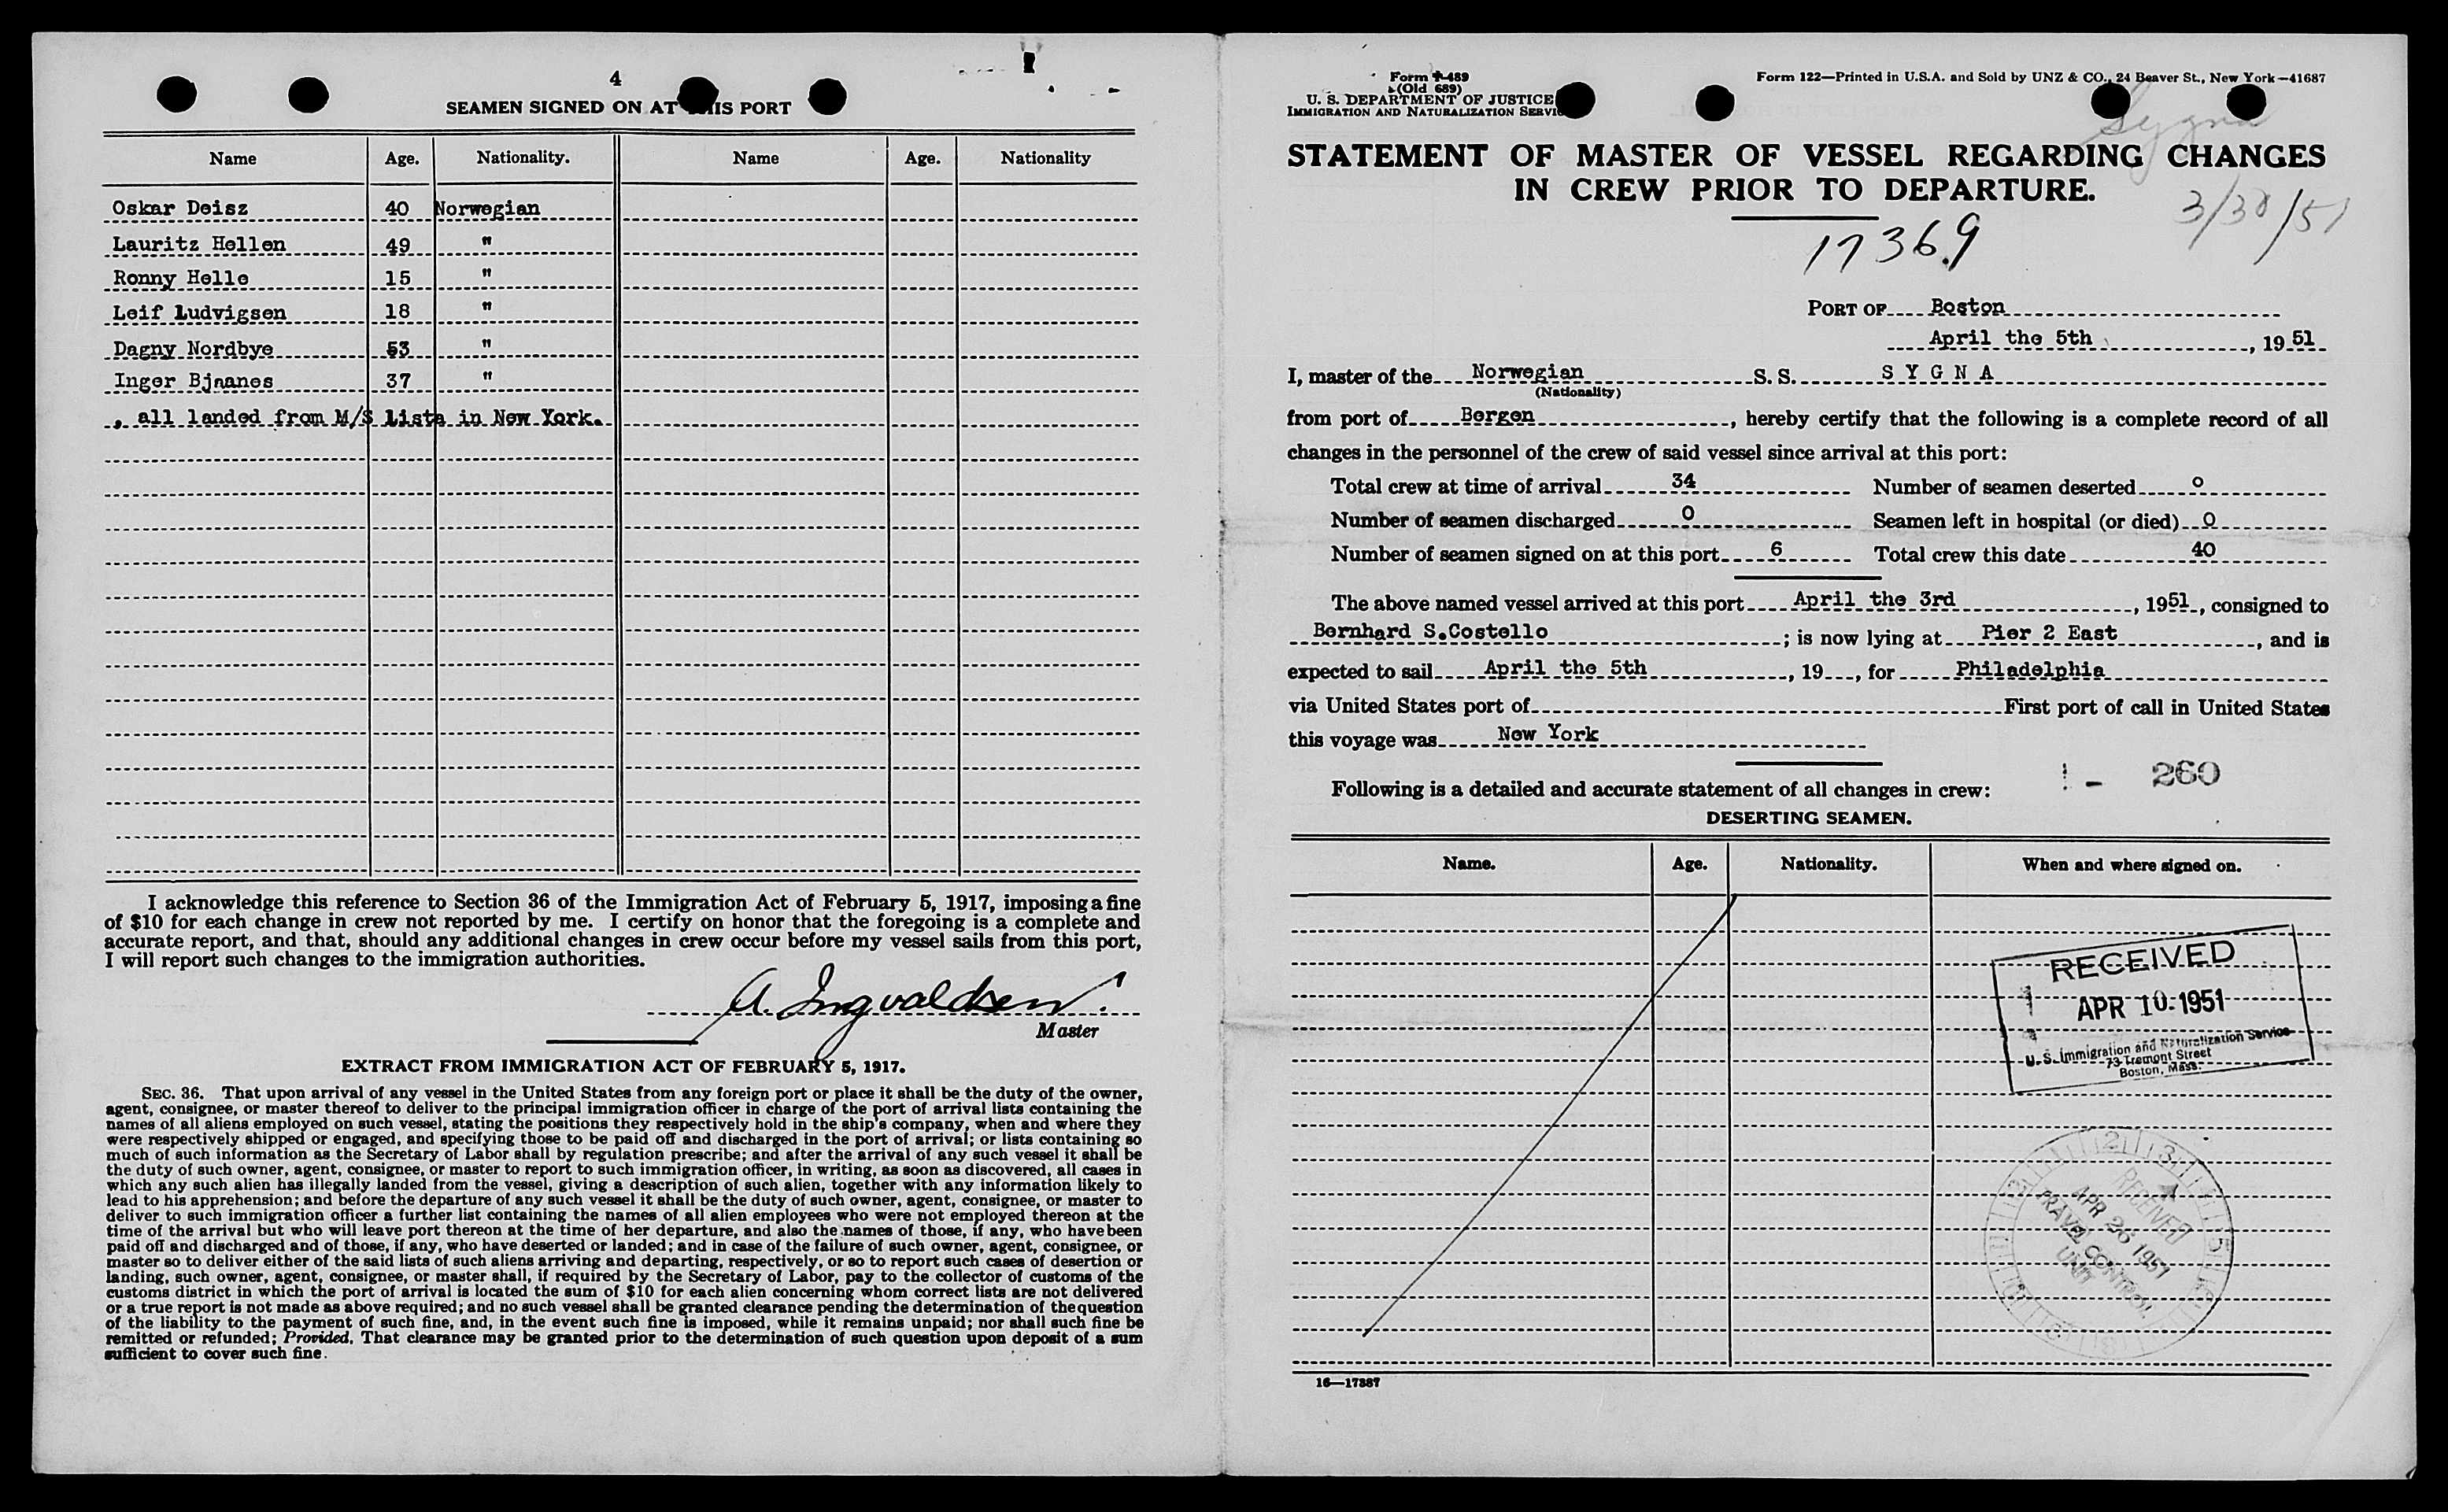 4
SEAMEN SIGNED ON AT THIS PORT
Name Age. Nationality. Name Age. Nationality
Oskar Deisz 40 Norwegian
Lauritz Hellen 49 "
Ronny Helle 15 "
Leif Ludvigsen 18 "
Dagny Nordbye 53 "
Inger Bjaanes 37 "
, all landed from M/S Lista in New York.
I acknowledge this reference to Section 36 of the Immigration Act of February 5, 1917, imposing a fine
of $10 for each change in crew not reported by me. I certify on honor that the foregoing is a complete and
accurate report, and that, should any additional changes in crew occur before my vessel sails from this port,
I will report such changes to the immigration authorities.
A. Ingvaldsen
Master
EXTRACT FROM IMMIGRATION ACT OF FEBRUARY 5, 1917.
SEC. 36. That upon arrival of any vessel in the United States from any foreign port or place it shall be the duty of the owner,
agent, consignee, or master thereof to deliver to the principal immigration officer in charge of the port of arrival lists containing the
names of all aliens employed on such vessel, stating the positions they respectively hold in the ship's company, when and where they
were respectively shipped or engaged, and specifying those to be paid off and discharged in the port of arrival; or lists containing so
much of such information as the Secretary of Labor shall by regulation prescribe; and after the arrival of any such vessel it shall be
the duty of such owner, agent, consignee, or master to report to such immigration officer, in writing, as soon as discovered, all cases in
which any such alien has illegally landed from the vessel, giving a description of such alien, together with any information likely to
lead to his apprehension; and before the departure of any such vessel it shall be the duty of such owner, agent, consignee, or master to
deliver to such immigration officer a further list containing the names of all alien employees who were not employed thereon at the
time of the arrival but who will leave port thereon at the time of her departure, and also the names of those, if any, who have been
paid off and discharged and of those, if any, who have deserted or landed; and in case of the failure of such owner, agent, consignee, or
master so to deliver either of the said lists of such aliens arriving and departing, respectively, or so to report such cases of desertion or
landing, such owner, agent, consignee, or master shall, if required by the Secretary of Labor, pay to the collector of customs of the
customs district in which the port of arrival is located the sum of $10 for each alien concerning whom correct lists are not delivered
or a true report is not made as above required; and no such vessel shall be granted clearance pending the determination of the question
of the liability to the payment of such fine, and, in the event such fine is imposed, while it remains unpaid; nor shall such fine be
remitted or refunded; Provided, That clearance may be granted prior to the determination of such question upon deposit of a sum
sufficient to cover such fine.
Form I-489
(Old 689)
U. S. DEPARTMENT OF JUSTICE
IMMIGRATION AND NATURALIZATION SERVICE
Form 122—Printed in U.S.A. and Sold by UNZ & CO., 24 Beaver St., New York—41687
Sygna
STATEMENT OF MASTER OF VESSEL REGARDING CHANGES
IN CREW PRIOR TO DEPARTURE.
3/30/51
17369
PORT OF Boston
April the 5th, 1951
I, master of the Norwegian S. S. S Y G N A
(Nationality)
from port of Bergen, hereby certify that the following is a complete record of all
changes in the personnel of the crew of said vessel since arrival at this port:
Total crew at time of arrival 34 Number of seamen deserted 0
Number of seamen discharged 0 Seamen left in hospital (or died) 0
Number of seamen signed on at this port 6 Total crew this date 40
The above named vessel arrived at this port April the 3rd, 1951, consigned to
Bernhard S.Costello; is now lying at Pier 2 East, and is
expected to sail April the 5th, 19, for Philadelphia
via United States port of First port of call in United States
this voyage was New York
- 260
Following is a detailed and accurate statement of all changes in crew:
DESERTING SEAMEN.
Name. Age. Nationality. When and where signed on.
RECEIVED
APR 10 1951
U. S. Immigration and Naturalization Service
73 Tremont Street
Boston, Mass.
RECEIVED
APR 26 1951
TRAVEL CONTROL
UNIT
16—17387